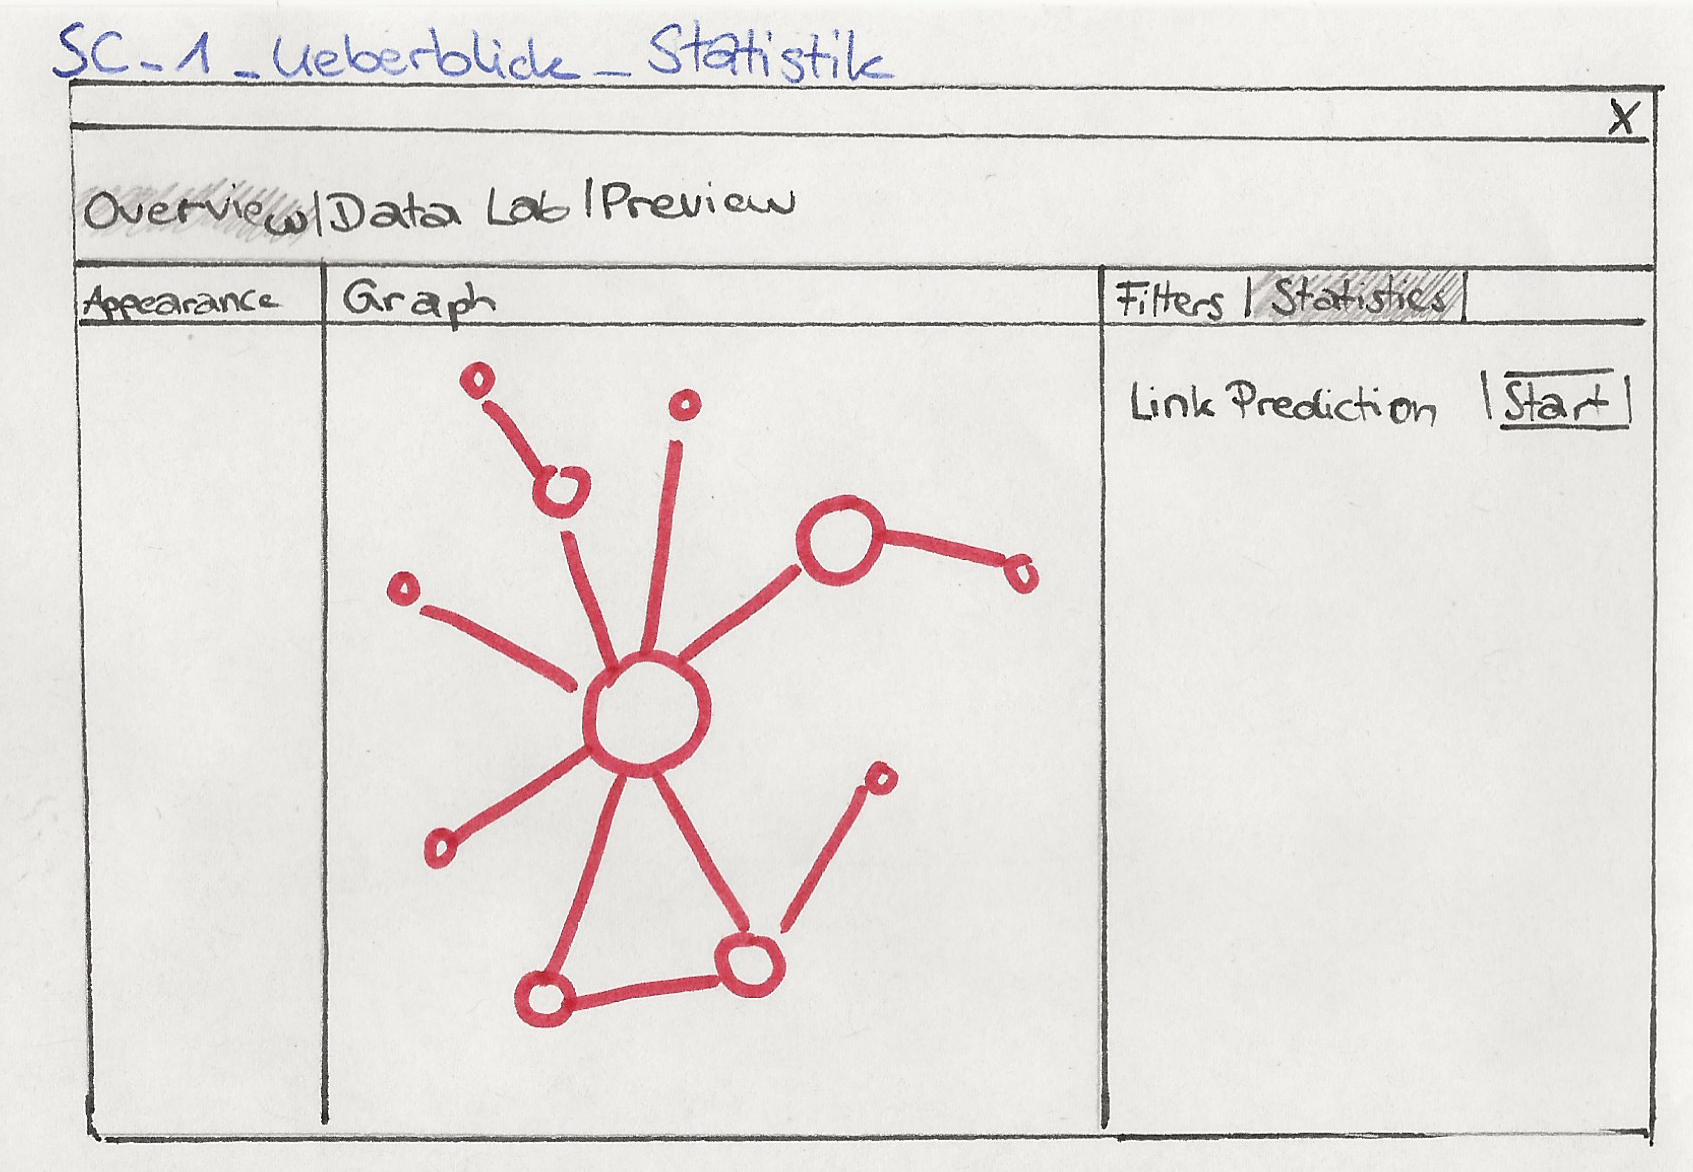 SC_1_Ueberblick_Statistik
X
Overview|Data Lab|Preview
Appearance
Graph
Filters | Statistics|
Link Prediction |Start|